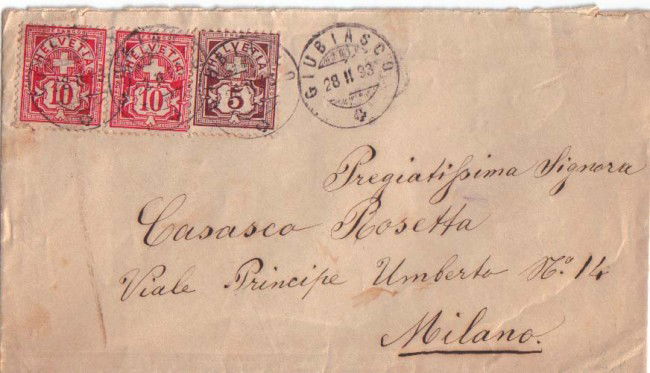 HELVETIA
10
HELVETIA
10
HELVETIA
5
GIUBIASCO
28 II 93
Pregiatissima Signora
Casasco Rosetta
Viale Principe Umberto No. 14
Milano.